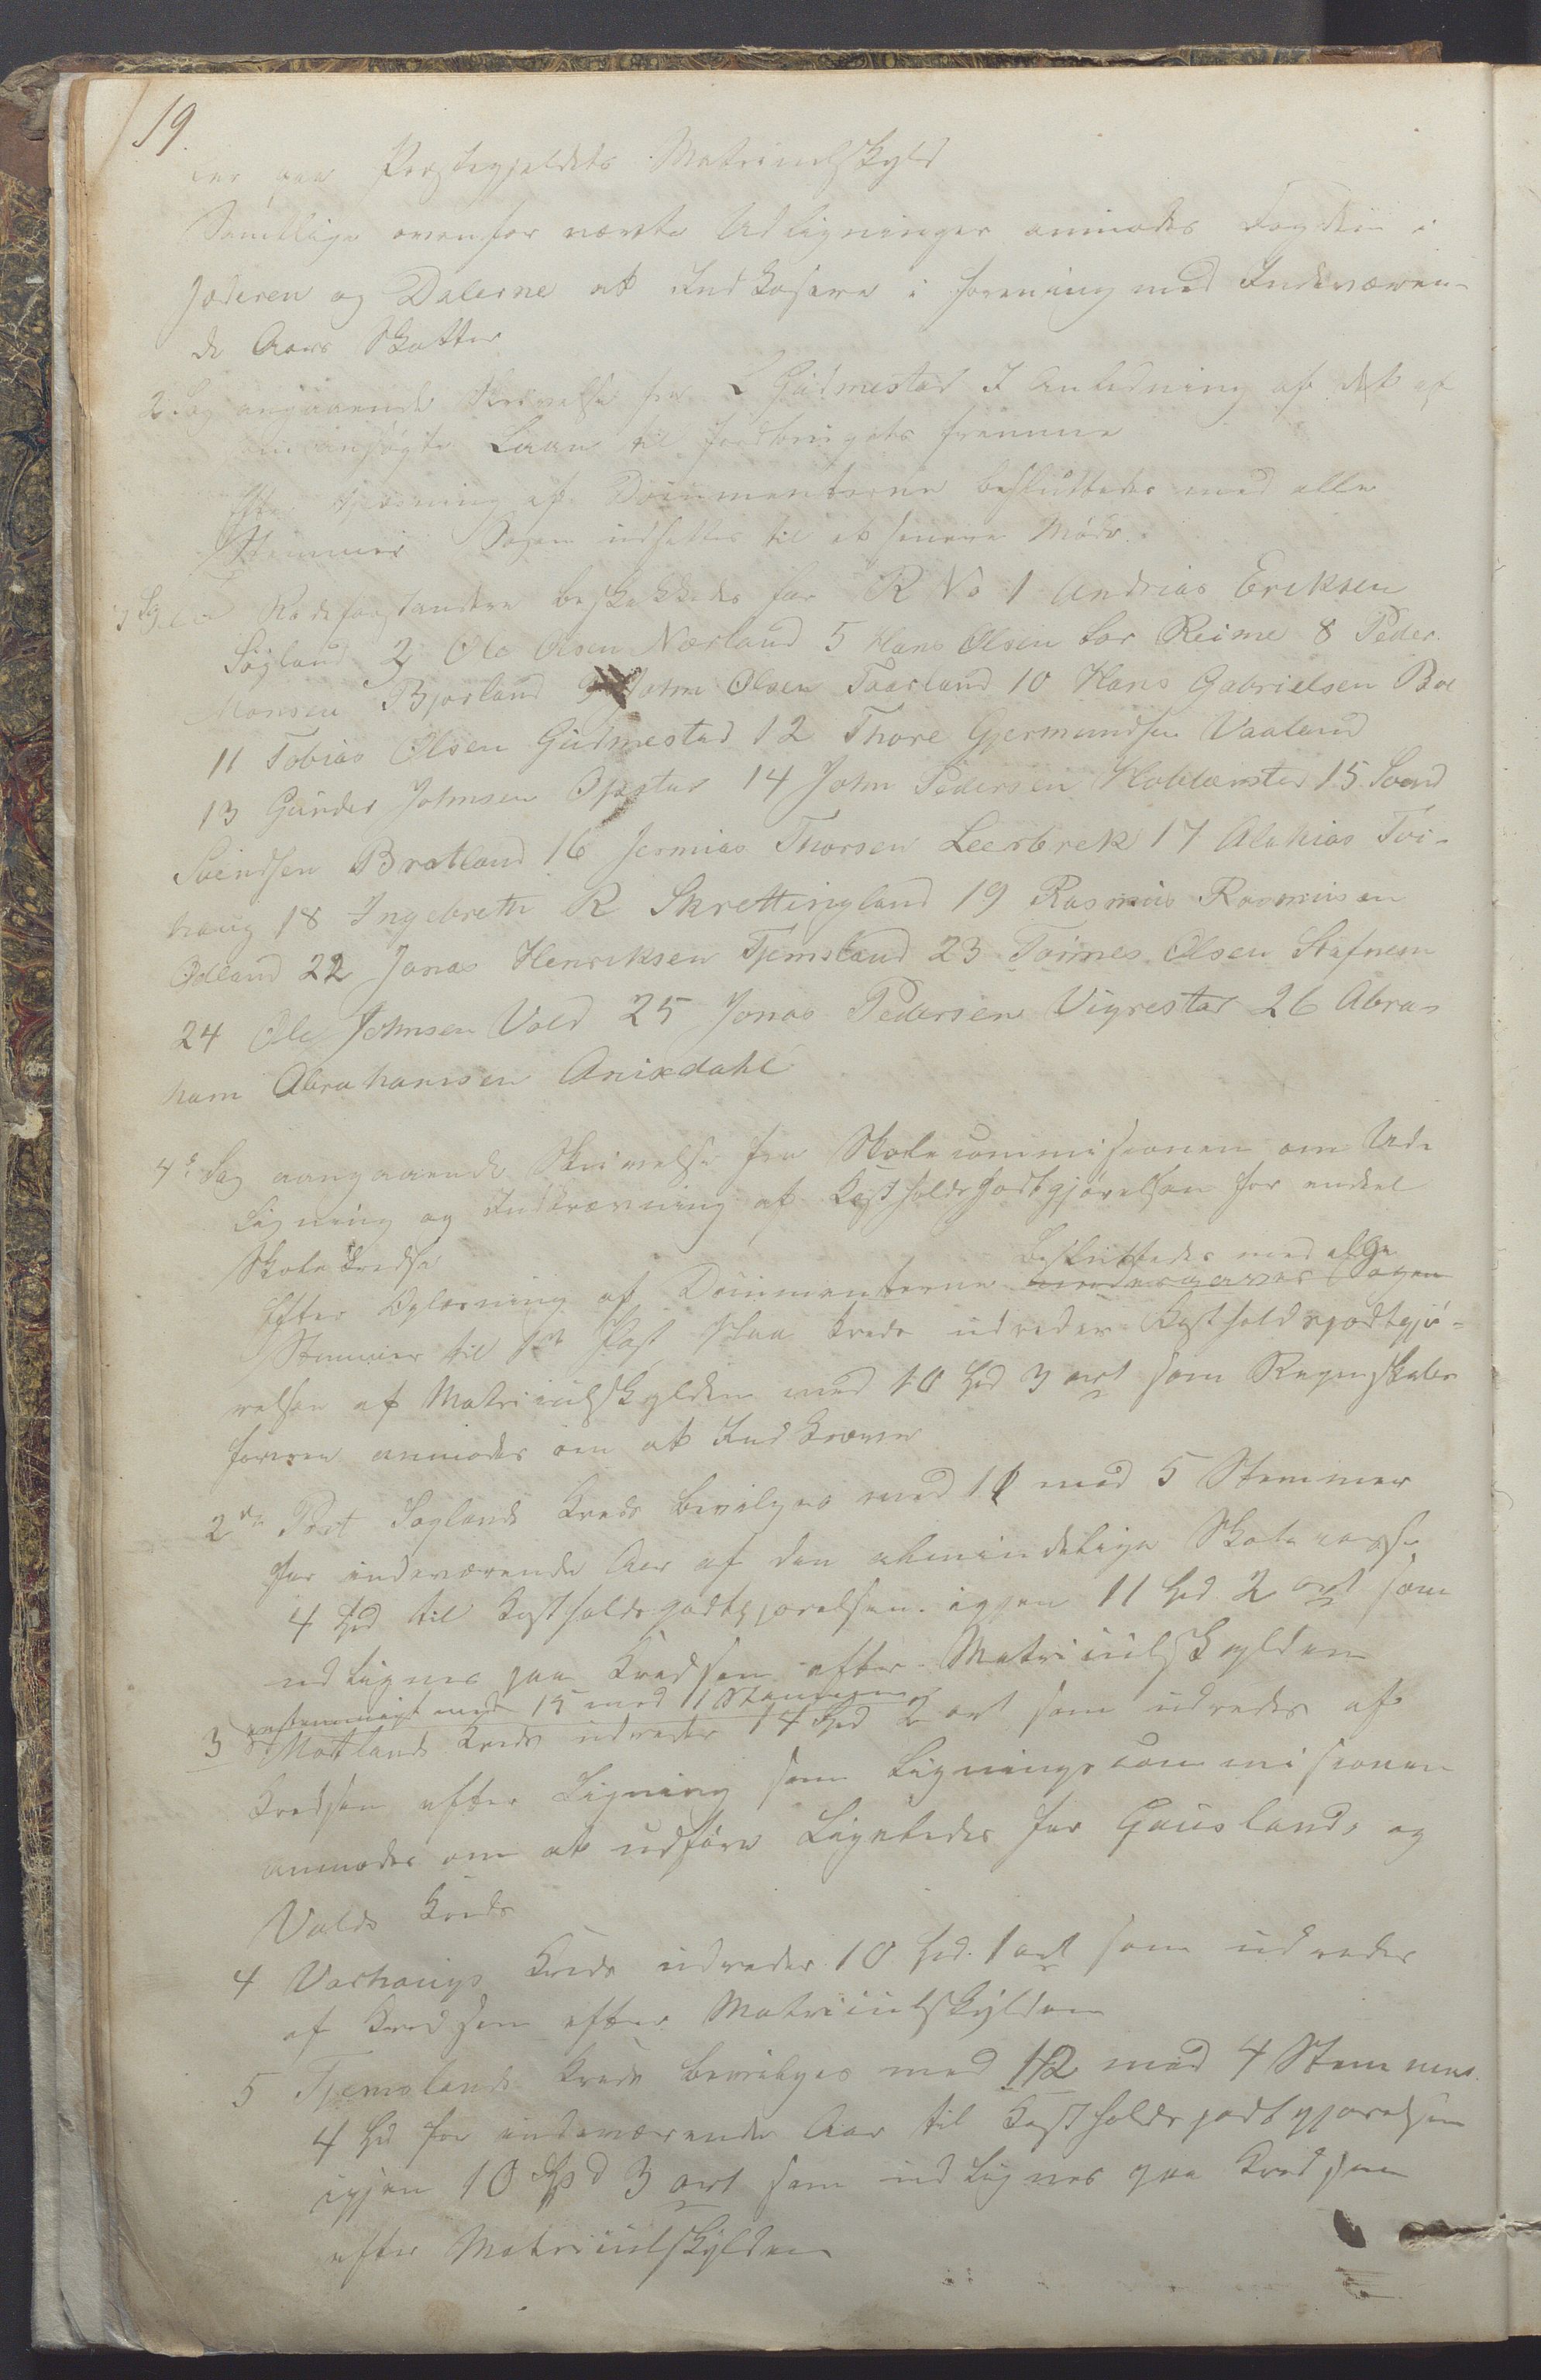 19.
paa Præstegjeldets Matriculskyld
Samtlige ovenfor nævnte Udligninger anmodes Fogden i
Jæderen og Dalerne at Indkræve i forening med Indeværen-
de Aars Skatter
2. Sag angaaende Skrivelse fra L Gudmestad I Anledning af det af
ansøgte Laan til fremme
Efter af Documenterne besluttedes med alle
Stemmer Sagen udsættes til et senere Møde.
3 Rodeforstandere beskikkedes for R No 1 Andrias Eriksen
Søyland 2 Ole Olsen Nærland 5 Hans Olsen Lor Reime 8 Peder
Monsen Bjorland 9 John Olsen Taarland 10 Hans Gabrielsen Boe
11 Tobias Olsen Gudmestad 12 Thore Gjermundsen Vaaland
13 Gunder Johnsen Opstad 14 John Pedersen 15 Svend
Svendsen Bratland 16 Jermias Thorsen Leerbrek 17 Alakias Tvi-
haug 18 Ingebreth R Skrettingland 19 Rasmus Rasmusen
Ødland 22 Jonas Henriksen Tjemsland 23 Tormes Olsen Stafnem
24 Ole Johnsen Vold 25 Jonas Pedersen Vigrestad 26 Abra-
ham Abrahamsen Anixdahl
4. Sag aangaaende Skrivelse fra Skolecommisionen om Ud-
ligning og Indkrævning af Kostholdsgodtgjørelsen for endeel
Skolekredse
besluttedes med alle
Efter Oplæsning af Documenterne Sagen
Stemmer til 1st Post Kreds udreder Kostholdsgodtgjø-
relsen af Matriculskylden med 10 Spd 3 ort som Regenskabs
føreren anmodes om at Indkræve
2de Post Søylands Kreds bevilges med 11 mod 5 Stemmer
for indeværende Aar af den almindelige Skolecasse
4 Spd til Kostholdsgodtgjørelsen. igjen 11 Spd 2 ort som
udlignes paa Kredsen efter Matriculskylden
enstemmigt med 15 mod 1 Stemme
3 Motlands Kreds udreder 14 Spd 2 ort som udredes af
Kredsen efter Ligning som Ligningscommisionen
anmodes om at udføre Ligeledes for Gauslands og
Volds Kreds
4 Varhaugs Kreds udreder 10 Spd. 1 ort som udredes
af Kredsen efter Matriculskylden
5 Tjemslands Kreds bevilges med 12 mod 4 Stemmer.
4 Spd for indeværende Aar til Kostholdsgodtgjørelsen
igjen 10 Spd 3 ort som udlignes paa Kredsen
efter Matriculskylden